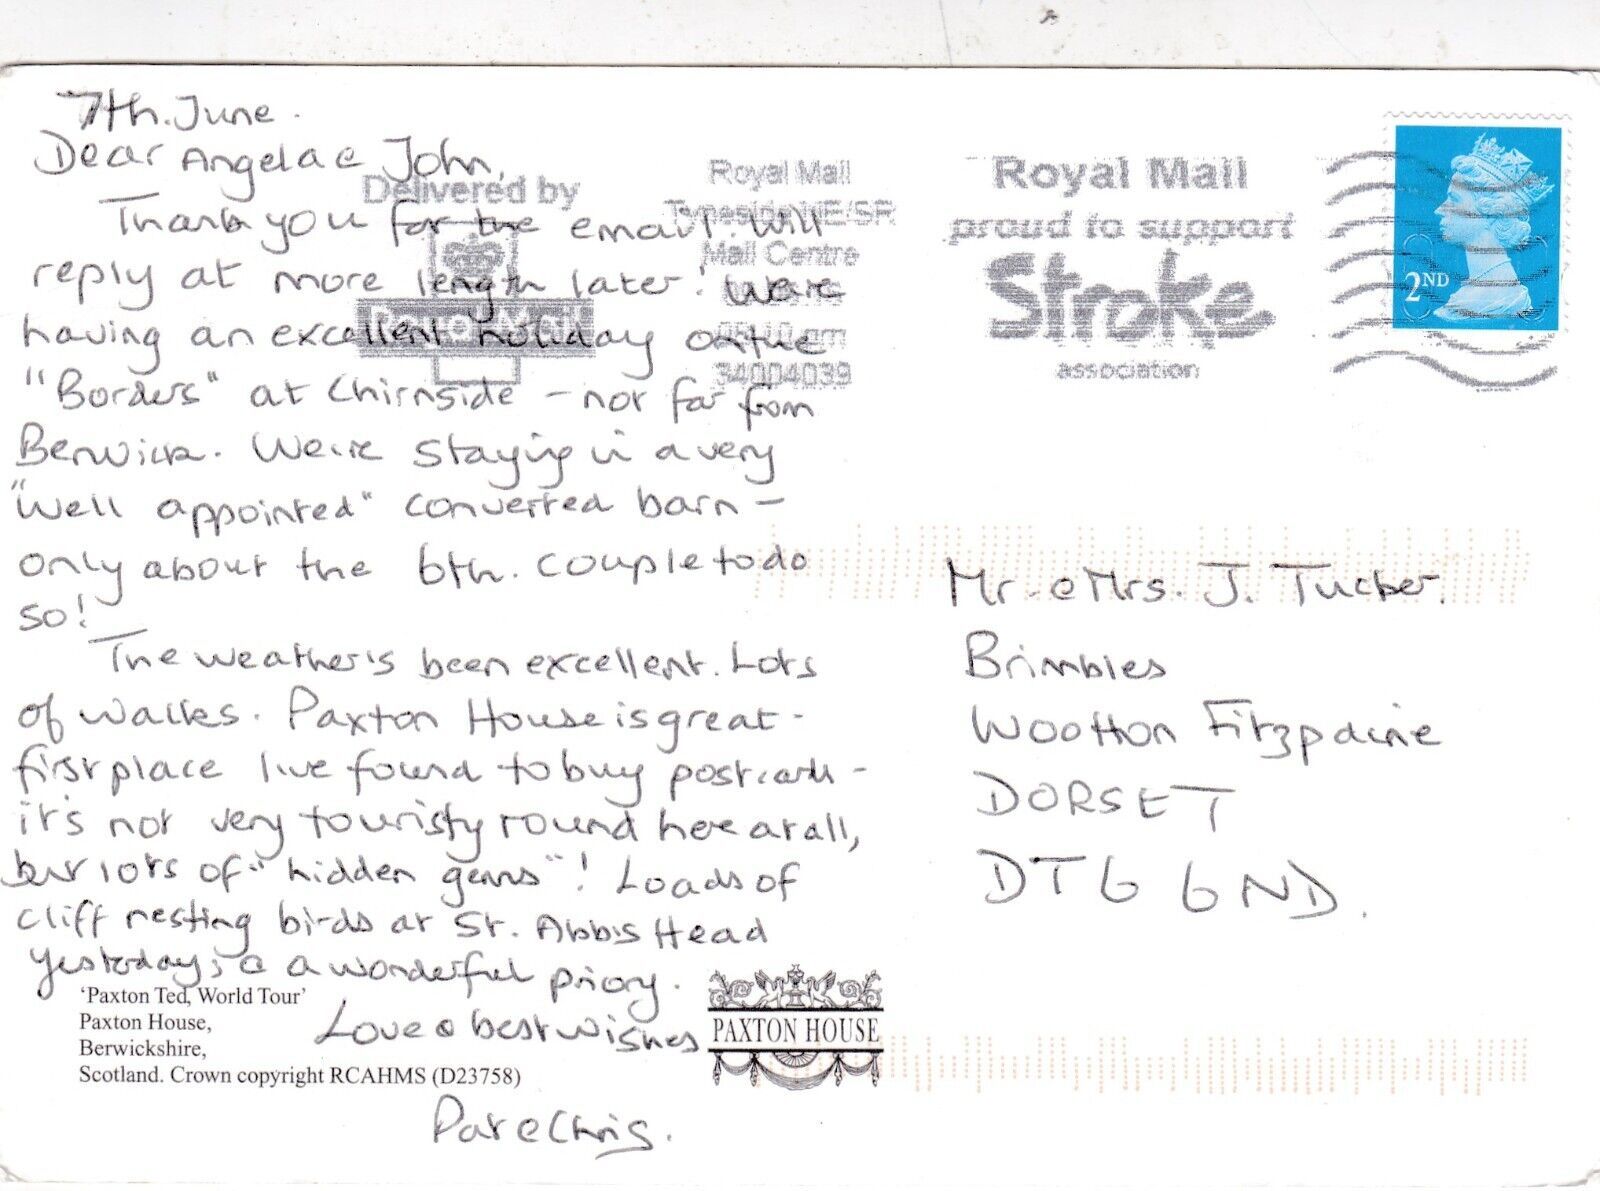 7th. June.
Dear Angela & John,
Thank you for the email. Will
reply at more length later! We're
having an excellent holiday on the
"Borders" at Chirnside - not far from
Berwick. We're staying in a very
"well appointed" converted barn -
only about the 6th. couple to do
so!
The weather's been excellent. Lots
of walks. Paxton House is great -
first place I've found to buy postcards -
it's not very touristy round here at all,
but lots of "hidden gems"! Loads of
cliff nesting birds at St. Abbs Head
yesterday, & a wonderful priory.
Love & best wishes
Pat & Chris.
'Paxton Ted, World Tour'
Paxton House,
Berwickshire,
Scotland. Crown copyright RCAHMS (D23758)
PAXTON HOUSE
Delivered by
Royal Mail
Royal Mail
Tyneside NE/SR
Mail Centre
34004039
Royal Mail
proud to support
Stroke
association
2ND
Mr. & Mrs. J. Tucker.
Brimbles
Wootton Fitzpaine
DORSET
DT6 6ND.